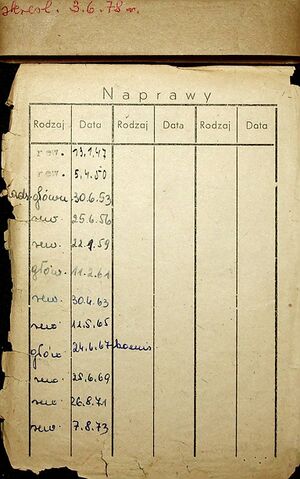 skreśl. 3.6.78 r.
Naprawy
Rodzaj Data Rodzaj Data Rodzaj Data
rew. 13.1.47
rew. 5.4.50
główna 30.6.53
rew 25.6.56
rew. 22.9.59
głów. 11.2.61
rew. 30.4.63
rew 12.5.65
głów 24.6.67
rew. 25.6.69
rew. 26.8.71
rew 7.8.73